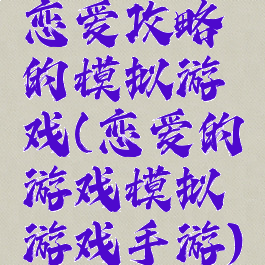 恋爱攻略
的模拟游
戏(恋爱的
游戏模拟
游戏手游)